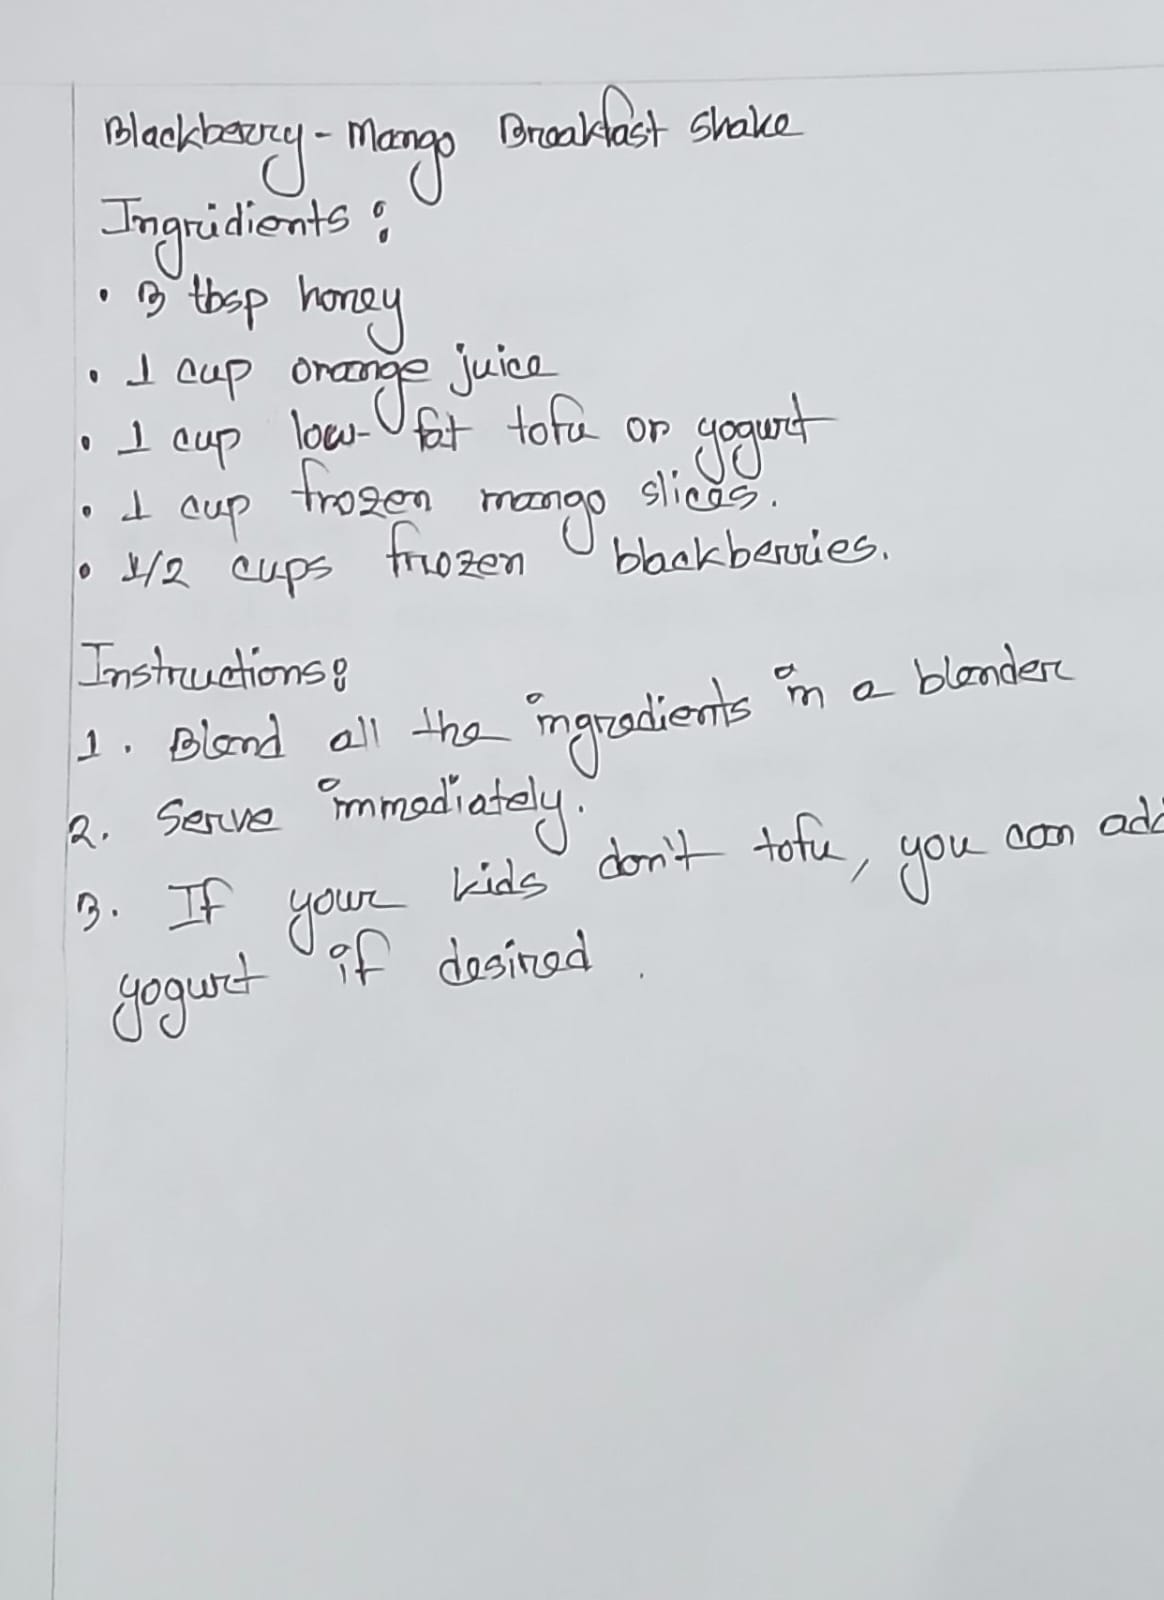 Blackberry - Mango Breakfast shake
Ingridients :
• 3 tbsp honey
• 1 cup orange juice
• 1 cup low-fat tofu or yogurt
• 1 cup frozen mango slices.
• 1/2 cups frozen blackberries.
Instructions:
1. Blend all the ingredients in a blender
2. Serve immediately.
3. If your kids don't tofu, you can add
yogurt if desired.